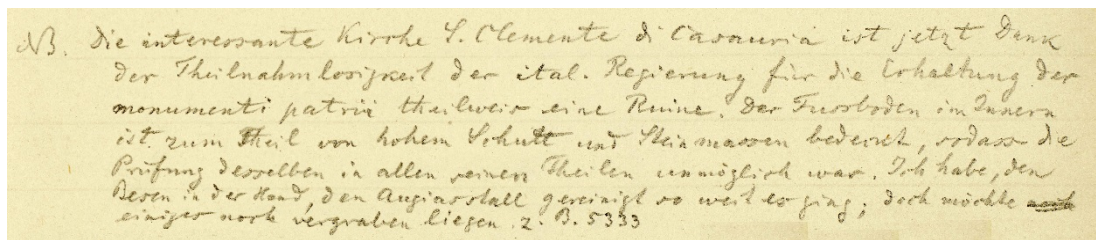 NB. Die interessante Kirche S. Clemente di Casauria ist jetzt Dank
der Theilnahmlosigkeit der ital. Regierung für die Erhaltung der
monumenti patrii theilweis eine Ruine. Der Fussboden im Innern
ist zum Theil von hohem Schutt und Steinmassen bedeckt, sodass die
Prüfung desselben in allen seinen Theilen unmöglich war. Ich habe, den
Besen in der Hand, den Augiasstall gereinigt so weit es ging; doch möchte
einiges noch vergraben liegen. z. B. 5333